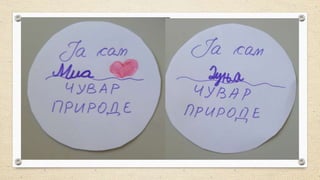 Ја сам
Миа
ЧУВАР
ПРИРОДЕ
Ја сам
Зуња
ЧУВАР
ПРИРОДЕ